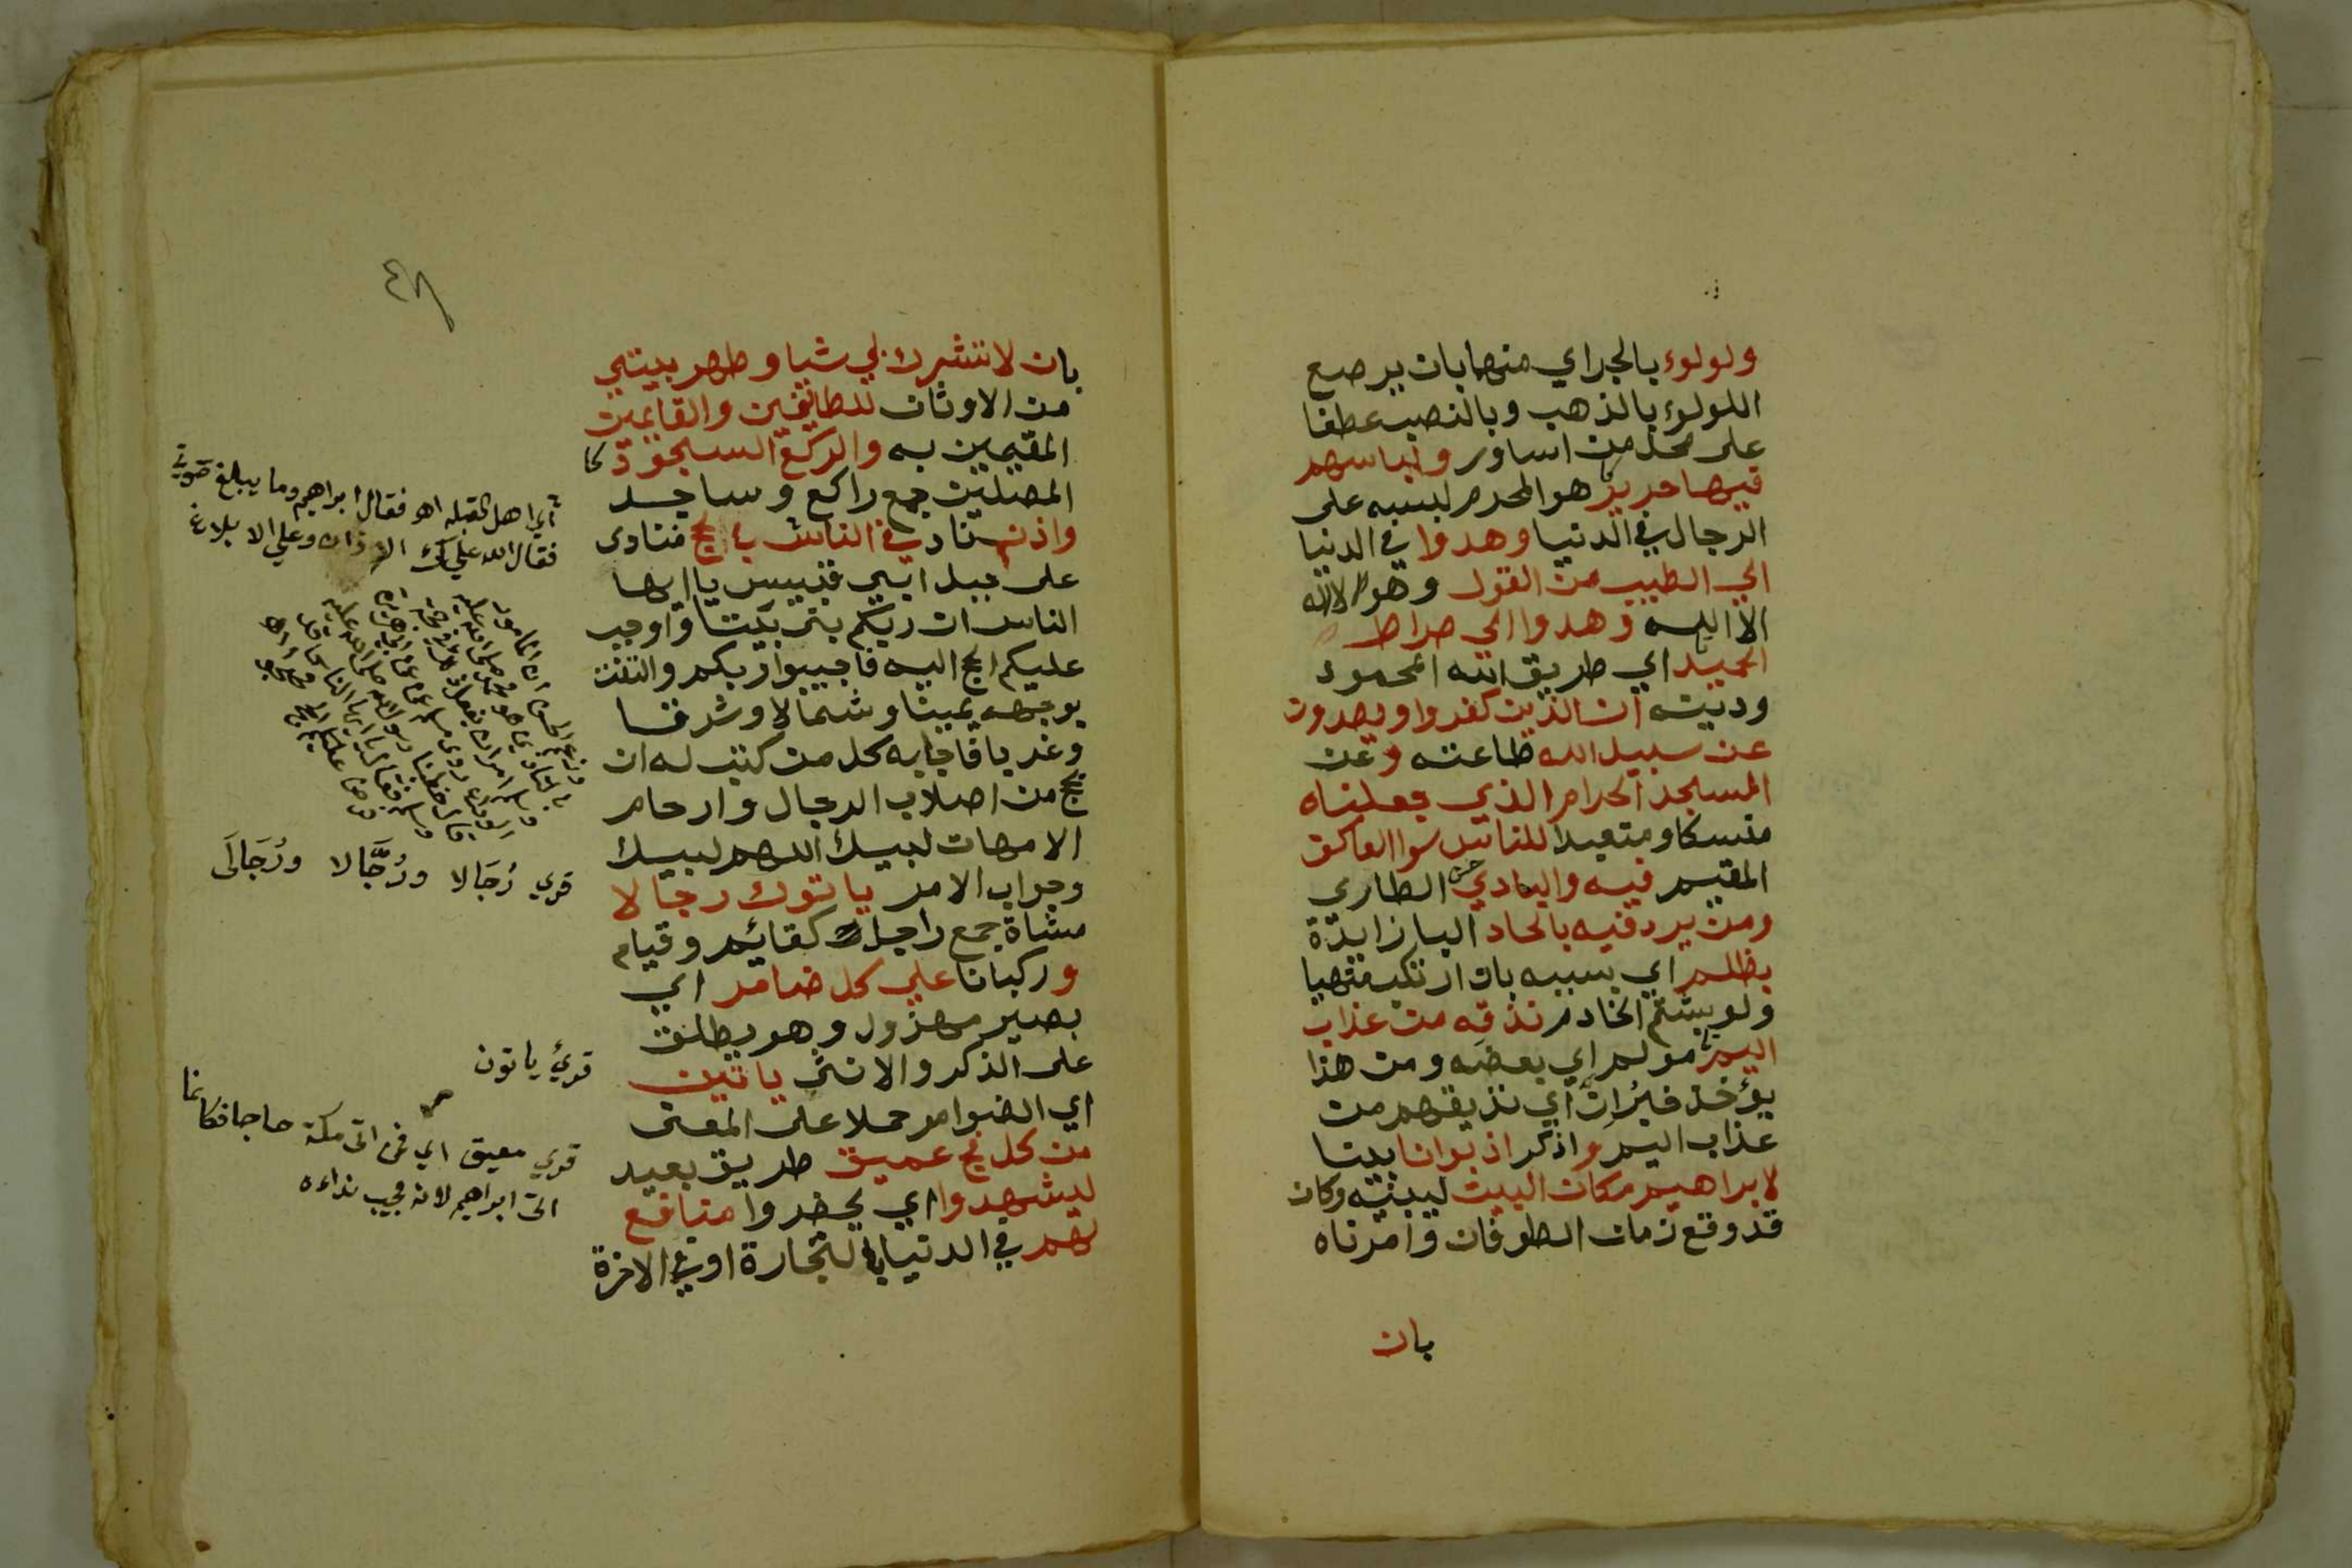 ولولوء بالجر اي منهما بان يرصع
اللولوء بالذهب وبالنصب عطفا
على محل من اساور ولباسهم
فيها حرير هو المحرم لبسه على
الرجال في الدنيا وهدوا في الدنيا
الي الطيب من القول وهو لا اله
الا الله وهدوا الي صراط
الحميد اي طريق الله المحمود
ودينه ان الذين كفروا ويصدون
عن سبيل الله طاعته وعن
المسجد الحرام الذي جعلناه
منسكا ومتعبدا للناس سوا العاكف
المقيم فيه والبادي الطاري
ومن يرد فيه بالحاد البا زايدة
بظلم اي بسببه بان ارتكب منهيا
ولو بشتم الخادم نذقه من عذاب
اليم مولم اي بعضه ومن هذا
يؤخذ خبران اي نذيقهم من
عذاب اليم واذكر اذ بوانا بينا
لابراهيم مكان البيت ليبنيه وكان
قد وقع زمان الطوفان وامرناه
بان
٤٨
بان لا تشرك بي شيا وطهر بيتي
من الاوثان للطايفين والقايمين
المقيمين به والركع السجود كا
المصلين جمع راكع وساجد
واذن ناد في الناس بالحج فنادى
على جبل ابي قبيس يا ايها
الناس ان ربكم بنى بيتا واوجب
عليكم الحج اليه فاجيبوا ربكم والتفت
بوجهه يمينا وشمالا وشرقا
وغربا فاجابه كل من كتب له ان
يحج من اصلاب الرجال وارحام
الامهات لبيك اللهم لبيك
وجواب الامر ياتوك رجالا
مشاة جمع راجل كقائم وقيام
وركبانا علي كل ضامر اي
بعير مهزول وهو يطلق
على الذكر والانثى ياتين
اي الضوامر حملا على المعنى
من كل فج عميق طريق بعيد
ليشهدوا اي يحضروا منافع
لهم في الدنيا بالتجارة او في الاخرة
اي اهل القبله اهو فقال ابراهيم وما يبلغ صوتي
فقال الله عليك الاذان وعلي الا بلاغ
قري رُجَالا ورُجَّالا ورُجَالَى
قرئ ياتون
قري معيق اي فمن اتى مكة حاجا فكانما
اتى ابراهيم لانه مجيب نداءه